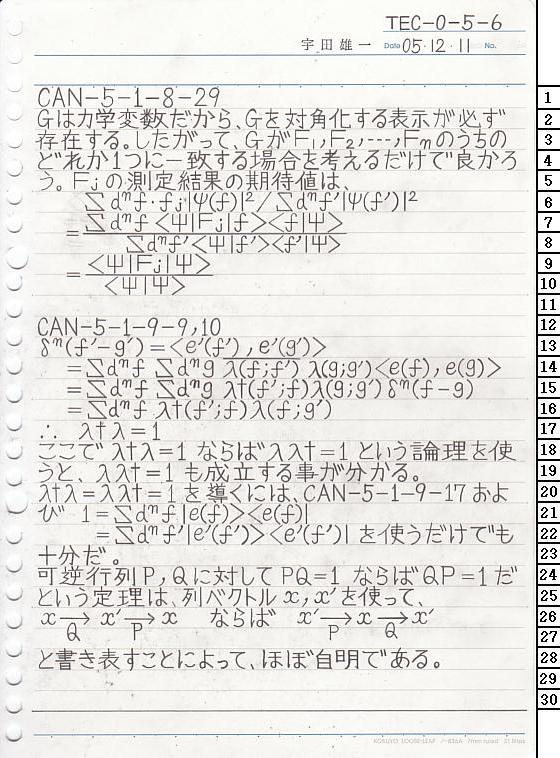 TEC-0-5-6
宇田雄一 Date 05・12・11 No.
CAN-5-1-8-29
Gは力学変数だから、Gを対角化する表示が必ず
存在する。したがって、GがF₁,F₂,…,Fₙのうちの
どれか1つに一致する場合を考えるだけで良かろ
う。Fⱼの測定結果の期待値は、
∑dⁿf・fⱼ|Ψ(f)|²/∑dⁿf'|Ψ(f')|²
=∑dⁿf<Ψ|Fⱼ|f><f|Ψ>
∑dⁿf'<Ψ|f'><f'|Ψ>
=<Ψ|Fⱼ|Ψ>
<Ψ|Ψ>
CAN-5-1-9-9,10
δⁿ(f'-g')=<e'(f'),e'(g')>
=∑dⁿf ∑dⁿg λ(f;f')λ(g;g')<e(f),e(g)>
=∑dⁿf ∑dⁿg λ†(f';f)λ(g;g')δⁿ(f-g)
=∑dⁿf λ†(f';f)λ(f;g')
∴ λ†λ=1
ここでλ†λ=1 ならばλλ†=1 という論理を使
うと、λλ†=1 も成立する事が分かる。
λ†λ=λλ†=1を導くには、CAN-5-1-9-17およ
び 1=∑dⁿf|e(f)><e(f)|
=∑dⁿf'|e'(f')><e'(f')| を使うだけでも
十分だ。
可逆行列P,Qに対してPQ=1 ならばQP=1だ
という定理は、列ベクトルx,x'を使って、
x→x'→x ならば x'→x→x'
Q P P Q
と書き表すことによって、ほぼ自明である。
KOKUYO LOOSE-LEAF ノ-836A 7mm ruled 31 lines
1
2
3
4
5
6
7
8
9
10
11
12
13
14
15
16
17
18
19
20
21
22
23
24
25
26
27
28
29
30